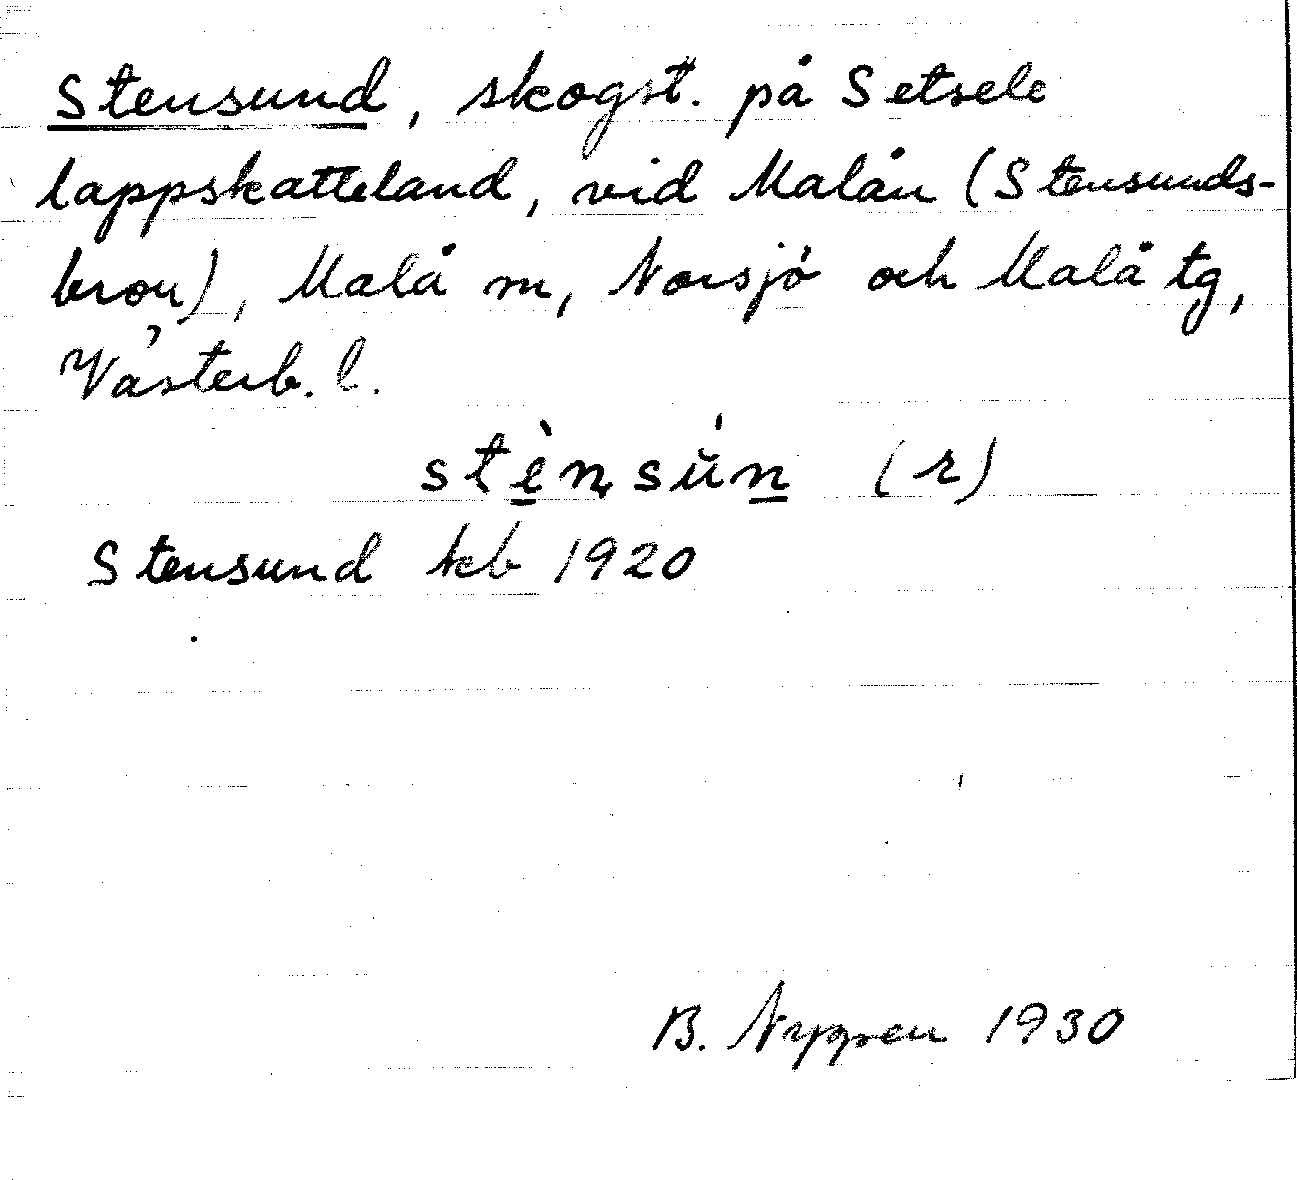 Stensund, skogst. på Setsele
lappskatteland, vid Malån (Stensunds-
bron), Malå sn, Norsjö och Malå tg,
Västerb. l.
stè̱nsŭ́ṉ (r)
Stensund kb 1920
B. Nygren 1930